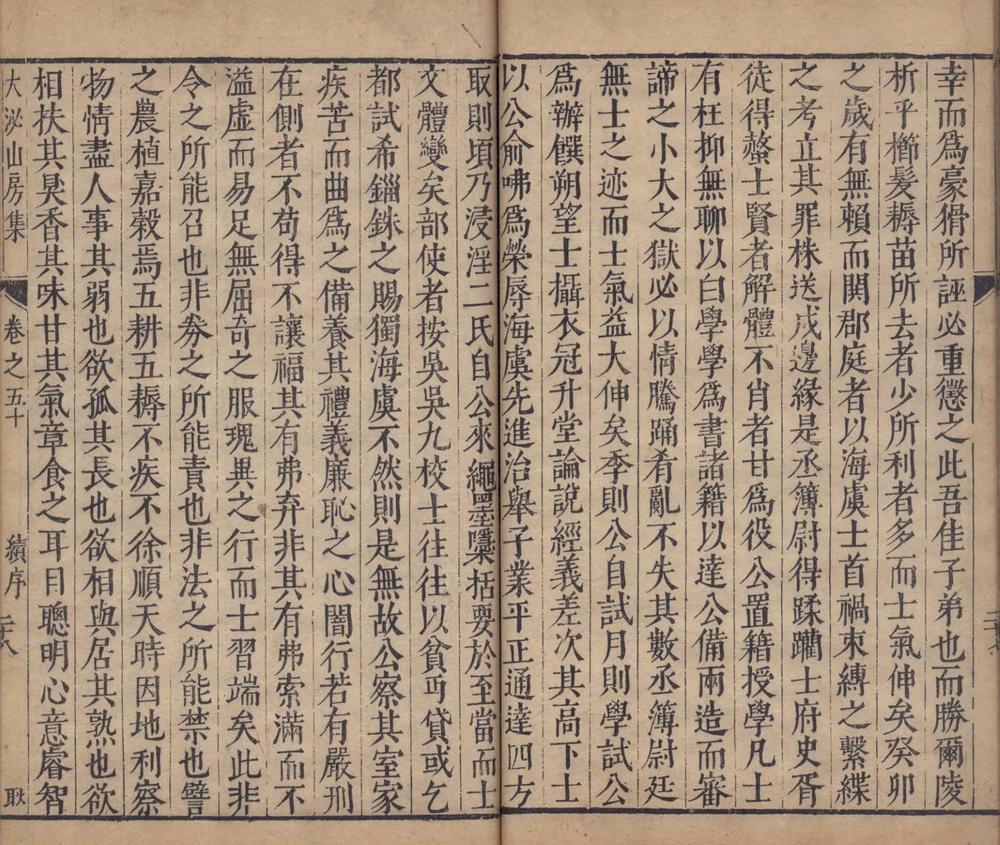 幸而爲豪猾所誣必重懲之此吾佳子弟也而勝爾陵
析乎櫛髮耨苗所去者少所利者多而士氣伸矣癸卯
之歲有無賴而関郡庭者以海虞士首禍束縳之繫緤
之考立其罪株送戍邊緣是丞簿尉得蹂躪士府史胥
徒得螯士賢者解體不肖者甘爲役公置籍授學凡士
有枉抑無聊以白學學爲書諸籍以達公備兩造而審
諦之小大之獄必以情騰踊肴亂不失其數丞簿尉廷
無士之迹而士氣益大伸矣季則公自試月則學試公
爲辦饌朔望士攝衣冠升堂論說經義差次其高下士
以公俞咈爲榮辱海虞先進治舉子業平正通達四方
取則頃乃浸淫二氏自公來繩墨櫽括要於至當而士
文體變矣部使者按吳吳九校士往往以貧丏貸或乞
都試希錙銖之賜獨海虞不然則是無故公察其室家
疾苦而曲爲之備養其禮義廉恥之心闇行若有嚴刑
在側者不苟得不讓福其有弗弃非其有弗索滿而不
溢虛而易足無屈奇之服瑰異之行而士習端矣此非
令之所能召也非劵之所能責也非法之所能禁也譬
之農植嘉榖焉五耕五耨不疾不徐順天時因地利察
物情盡人事其弱也欲孤其長也欲相與居其熟也欲
相扶其臭香其味甘其氣章食之耳目聰明心意睿智
大泌山房集
卷之五十
續序
耿